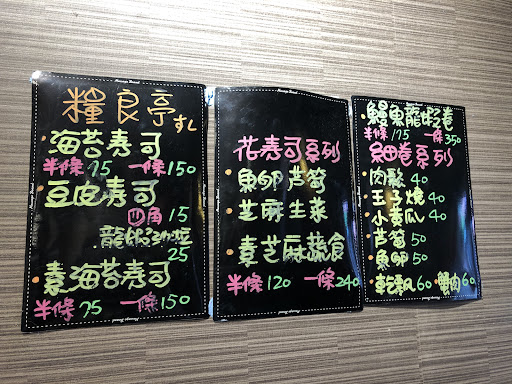 糧良亭すし
海苔寿司
半條75 一條150
豆皮寿司
四角15
龍蝦沙拉
25
素海苔寿司
半條75 一條150
花寿司系列
魚卵芦筍
芝麻生菜
素芝麻蔬食
半條120 一條240
鰻魚龍蝦卷
半條175 一條350
細卷系列
肉鬆40
玉子燒40
小黃瓜40
芦筍50
魚卵50
乾瓢60 蟹肉60